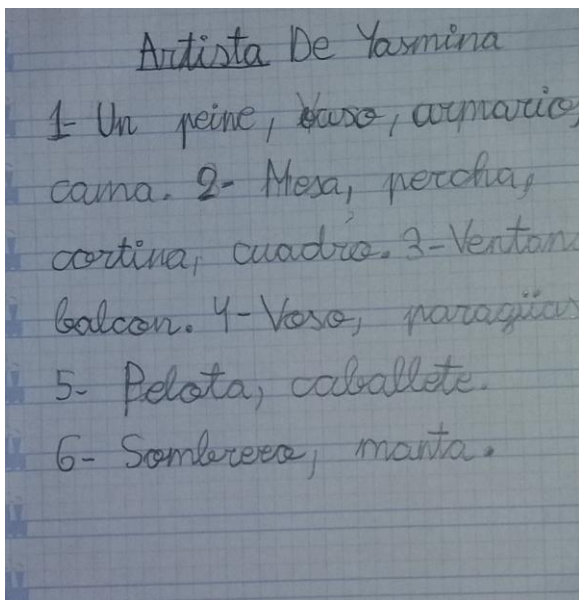 Artista De Yasmina
1- Un peine, vaso, armario,
cama. 2- Mesa, percha,
cortina, cuadro. 3- Ventan
balcon. 4- Vaso, paragüas
5- Pelota, caballete.
6- Sombrero, manta.